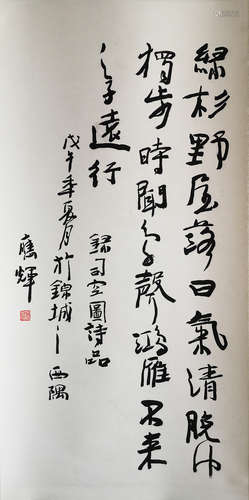 綠杉野屋落日氣清脫巾
獨步時聞鳥聲鴻雁不来
之子遠行
錄司空圖詩品
戊午年夏月於錦城之西隅
應輝